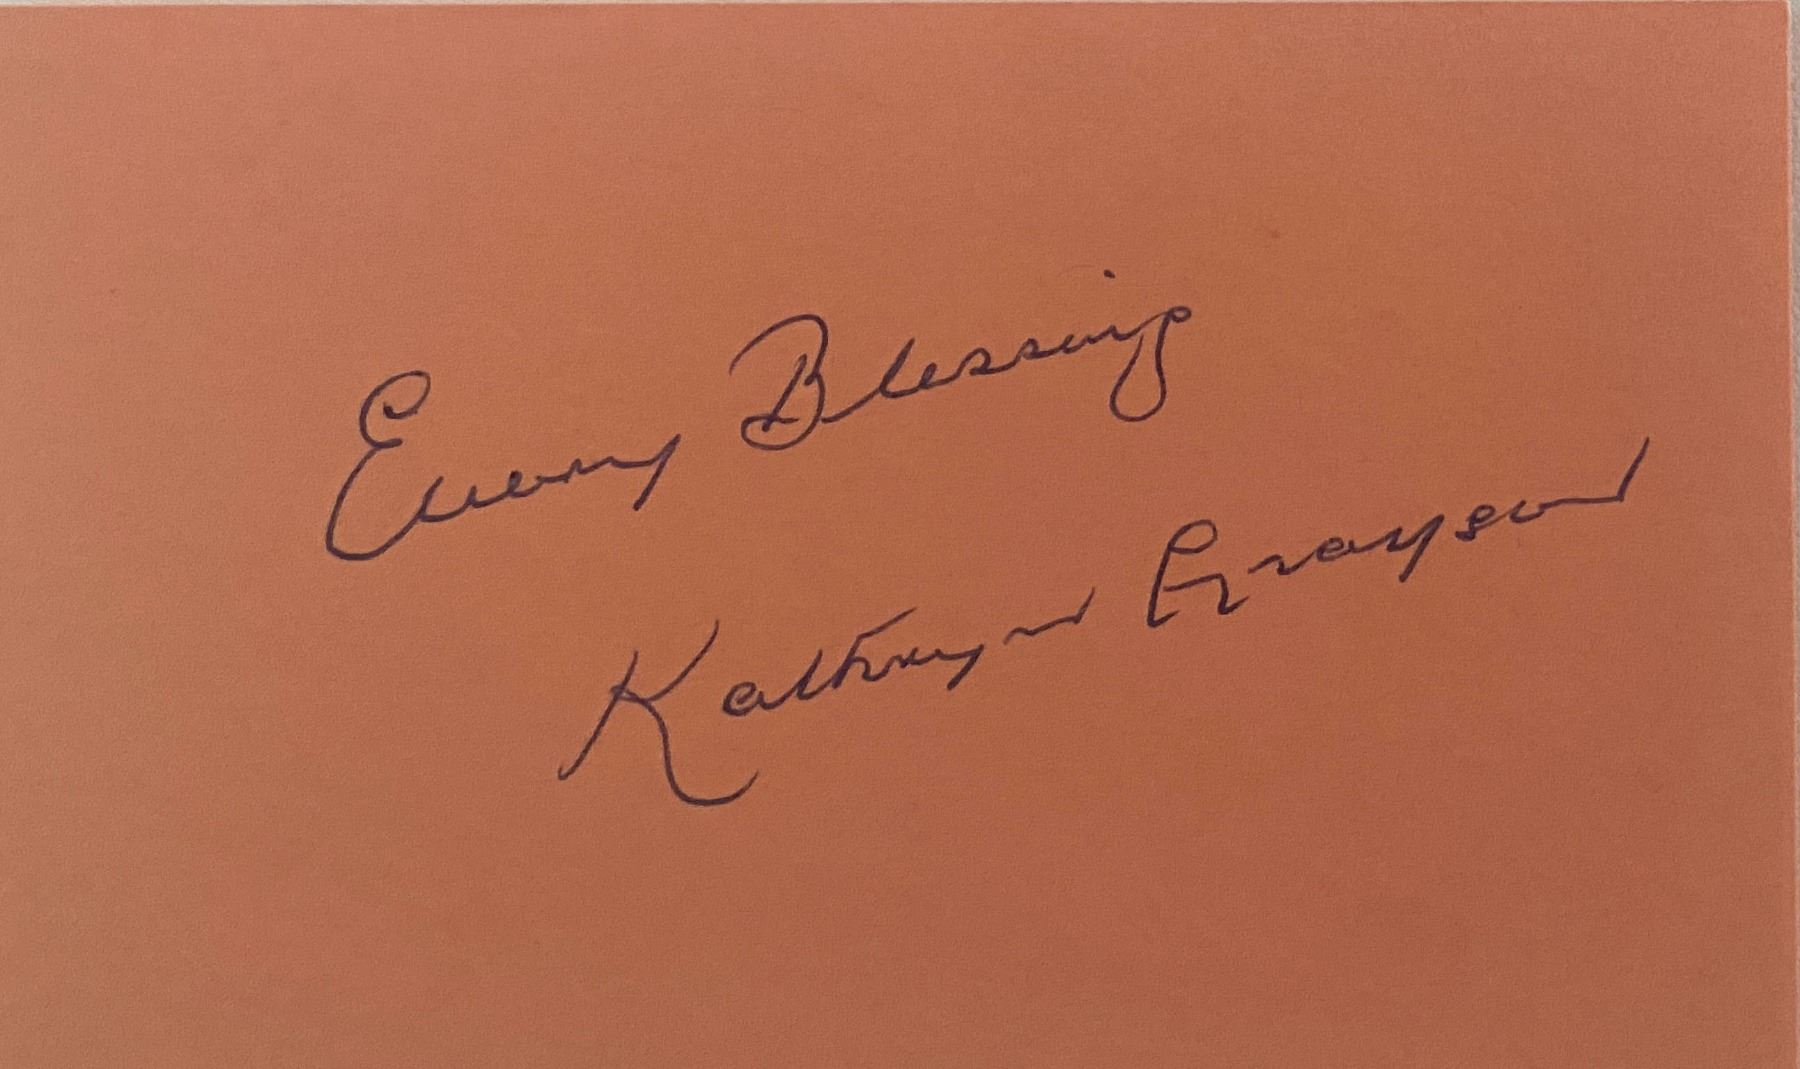 Every Blessing
Kathryn Grayson